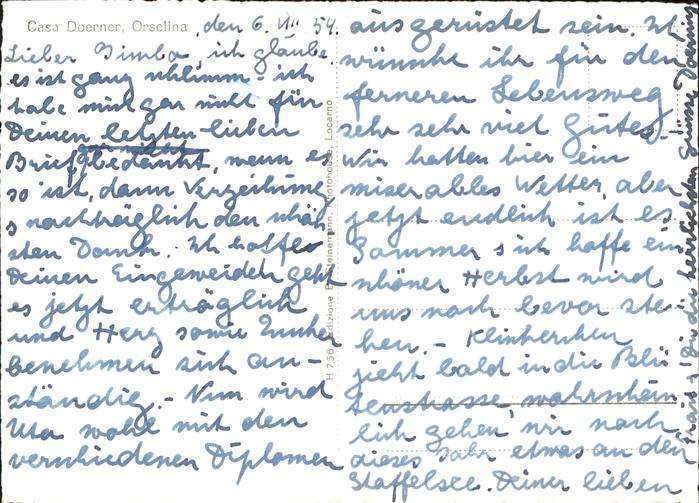 Casa Doerner, Orselina, den 6. VIII 54.
Lieber Bimba, ich glaube,
es ist ganz schlimm - ich
habe mich gar nicht für
Deinen letzten lieben
Brief bedankt, wenn es
so ist, dann Verzeihung
nachträglich den schön
sten Dank. Ich hoffe
Deinen Eingeweiden geht
es jetzt erträglich
und Herz sowie Zucker
benehmen sich an-
ständig. - Nun wird
Uta wohl mit den
verschiedenen Diplomen
ausgerüstet sein. Ich
wünsche ihr für den
ferneren Lebensweg
sehr sehr viel Gutes.
Wir hatten hier ein
miserables Wetter, aber
jetzt endlich ist es
Sommer, ich hoffe ein
schöner Herbst wird
uns noch bevor ste-
hen. -
zieht bald in die Blü
tenstrasse, wahrschein
lich gehen wir noch
dieses Jahr etwas an den
Staffelsee. Deiner lieben
H 756 Edizione Photohouse, Locarno